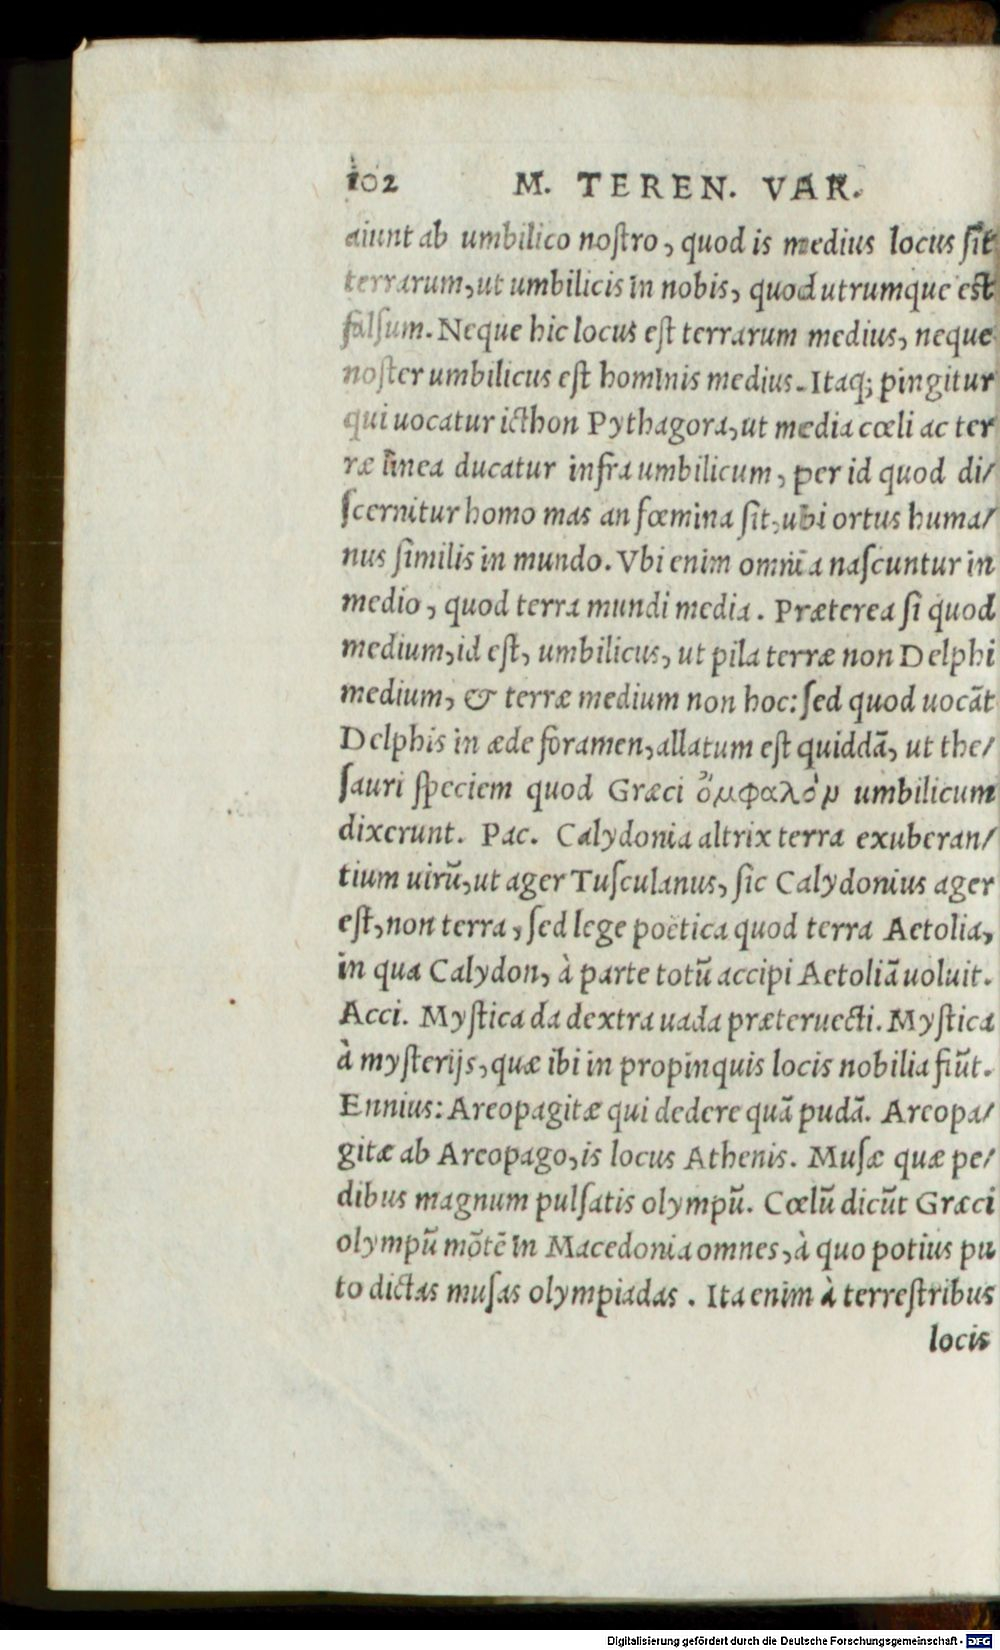 102 M. TEREN. VAR.
aiunt ab umbilico noſtro, quod is medius locus ſit
terrarum, ut umbilicis in nobis, quod utrumque eſt
falſum. Neque hic locus eſt terrarum medius, neque
noſter umbilicus eſt hominis medius. Itaq; pingitur
qui uocatur icthon Pythagora, ut media cœli ac ter
ræ linea ducatur infra umbilicum, per id quod di/
ſcernitur homo mas an fœmina ſit, ubi ortus huma/
nus ſimilis in mundo. Vbi enim omnia naſcuntur in
medio, quod terra mundi media. Præterea ſi quod
medium, id eſt, umbilicus, ut pila terræ non Delphi
medium, & terræ medium non hoc: ſed quod uocãt
Delphis in æde foramen, allatum eſt quiddã, ut the/
ſauri ſpeciem quod Græci ὄμφαλὸν umbilicum
dixerunt. Pac. Calydonia altrix terra exuberan/
tium uirũ, ut ager Tuſculanus, ſic Calydonius ager
eſt, non terra, ſed lege poëtica quod terra Aetolia,
in qua Calydon, à parte totũ accipi Aetoliã uoluit.
Acci. Myſtica da dextra uada præteruecti. Myſtica
à myſterijs, quæ ibi in propinquis locis nobilia fiũt.
Ennius: Areopagitæ qui dedere quã pudã. Areopa/
gitæ ab Areopago, is locus Athenis. Muſæ quæ pe/
dibus magnum pulſatis olympũ. Cœlũ dicũt Græci
olympũ mõtẽ in Macedonia omnes, à quo potius pu
to dictas muſas olympiadas. Ita enim à terreſtribus
locis
Digitalisierung gefördert durch die Deutsche Forschungsgemeinschaft - DFG